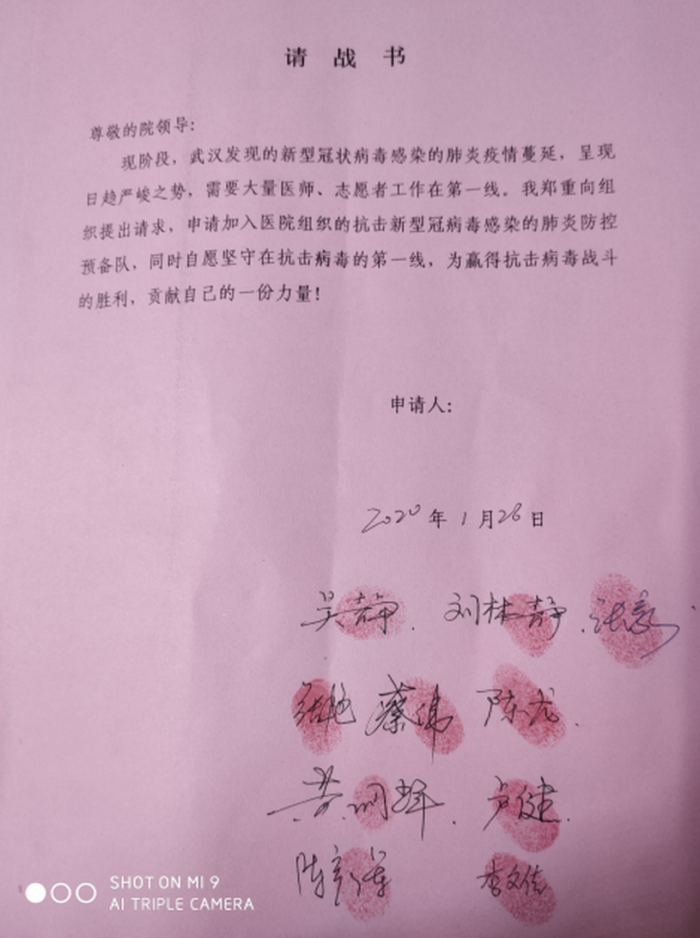 请战书
尊敬的院领导:
现阶段，武汉发现的新型冠状病毒感染的肺炎疫情蔓延，呈现
日趋严峻之势，需要大量医师、志愿者工作在第一线。我郑重向组
织提出请求，申请加入医院组织的抗击新型冠病毒感染的肺炎防控
预备队，同时自愿坚守在抗击病毒的第一线，为赢得抗击病毒战斗
的胜利，贡献自己的一份力量!
申请人:
2020年1月28日
吴静. 刘林静.
蔡伟 陈龙.
卢健.
李文佳
SHOT ON MI 9
AI TRIPLE CAMERA